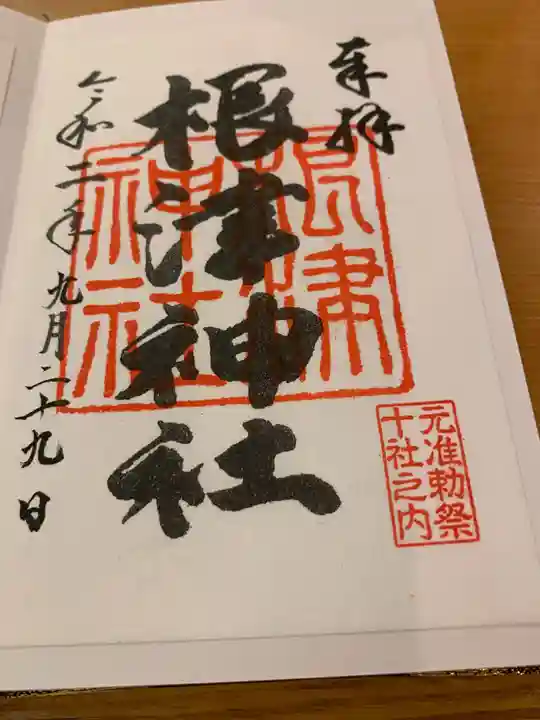 奉拝
根津神社
根津神社
元准勅祭
十社之内
令和二年九月二十九日